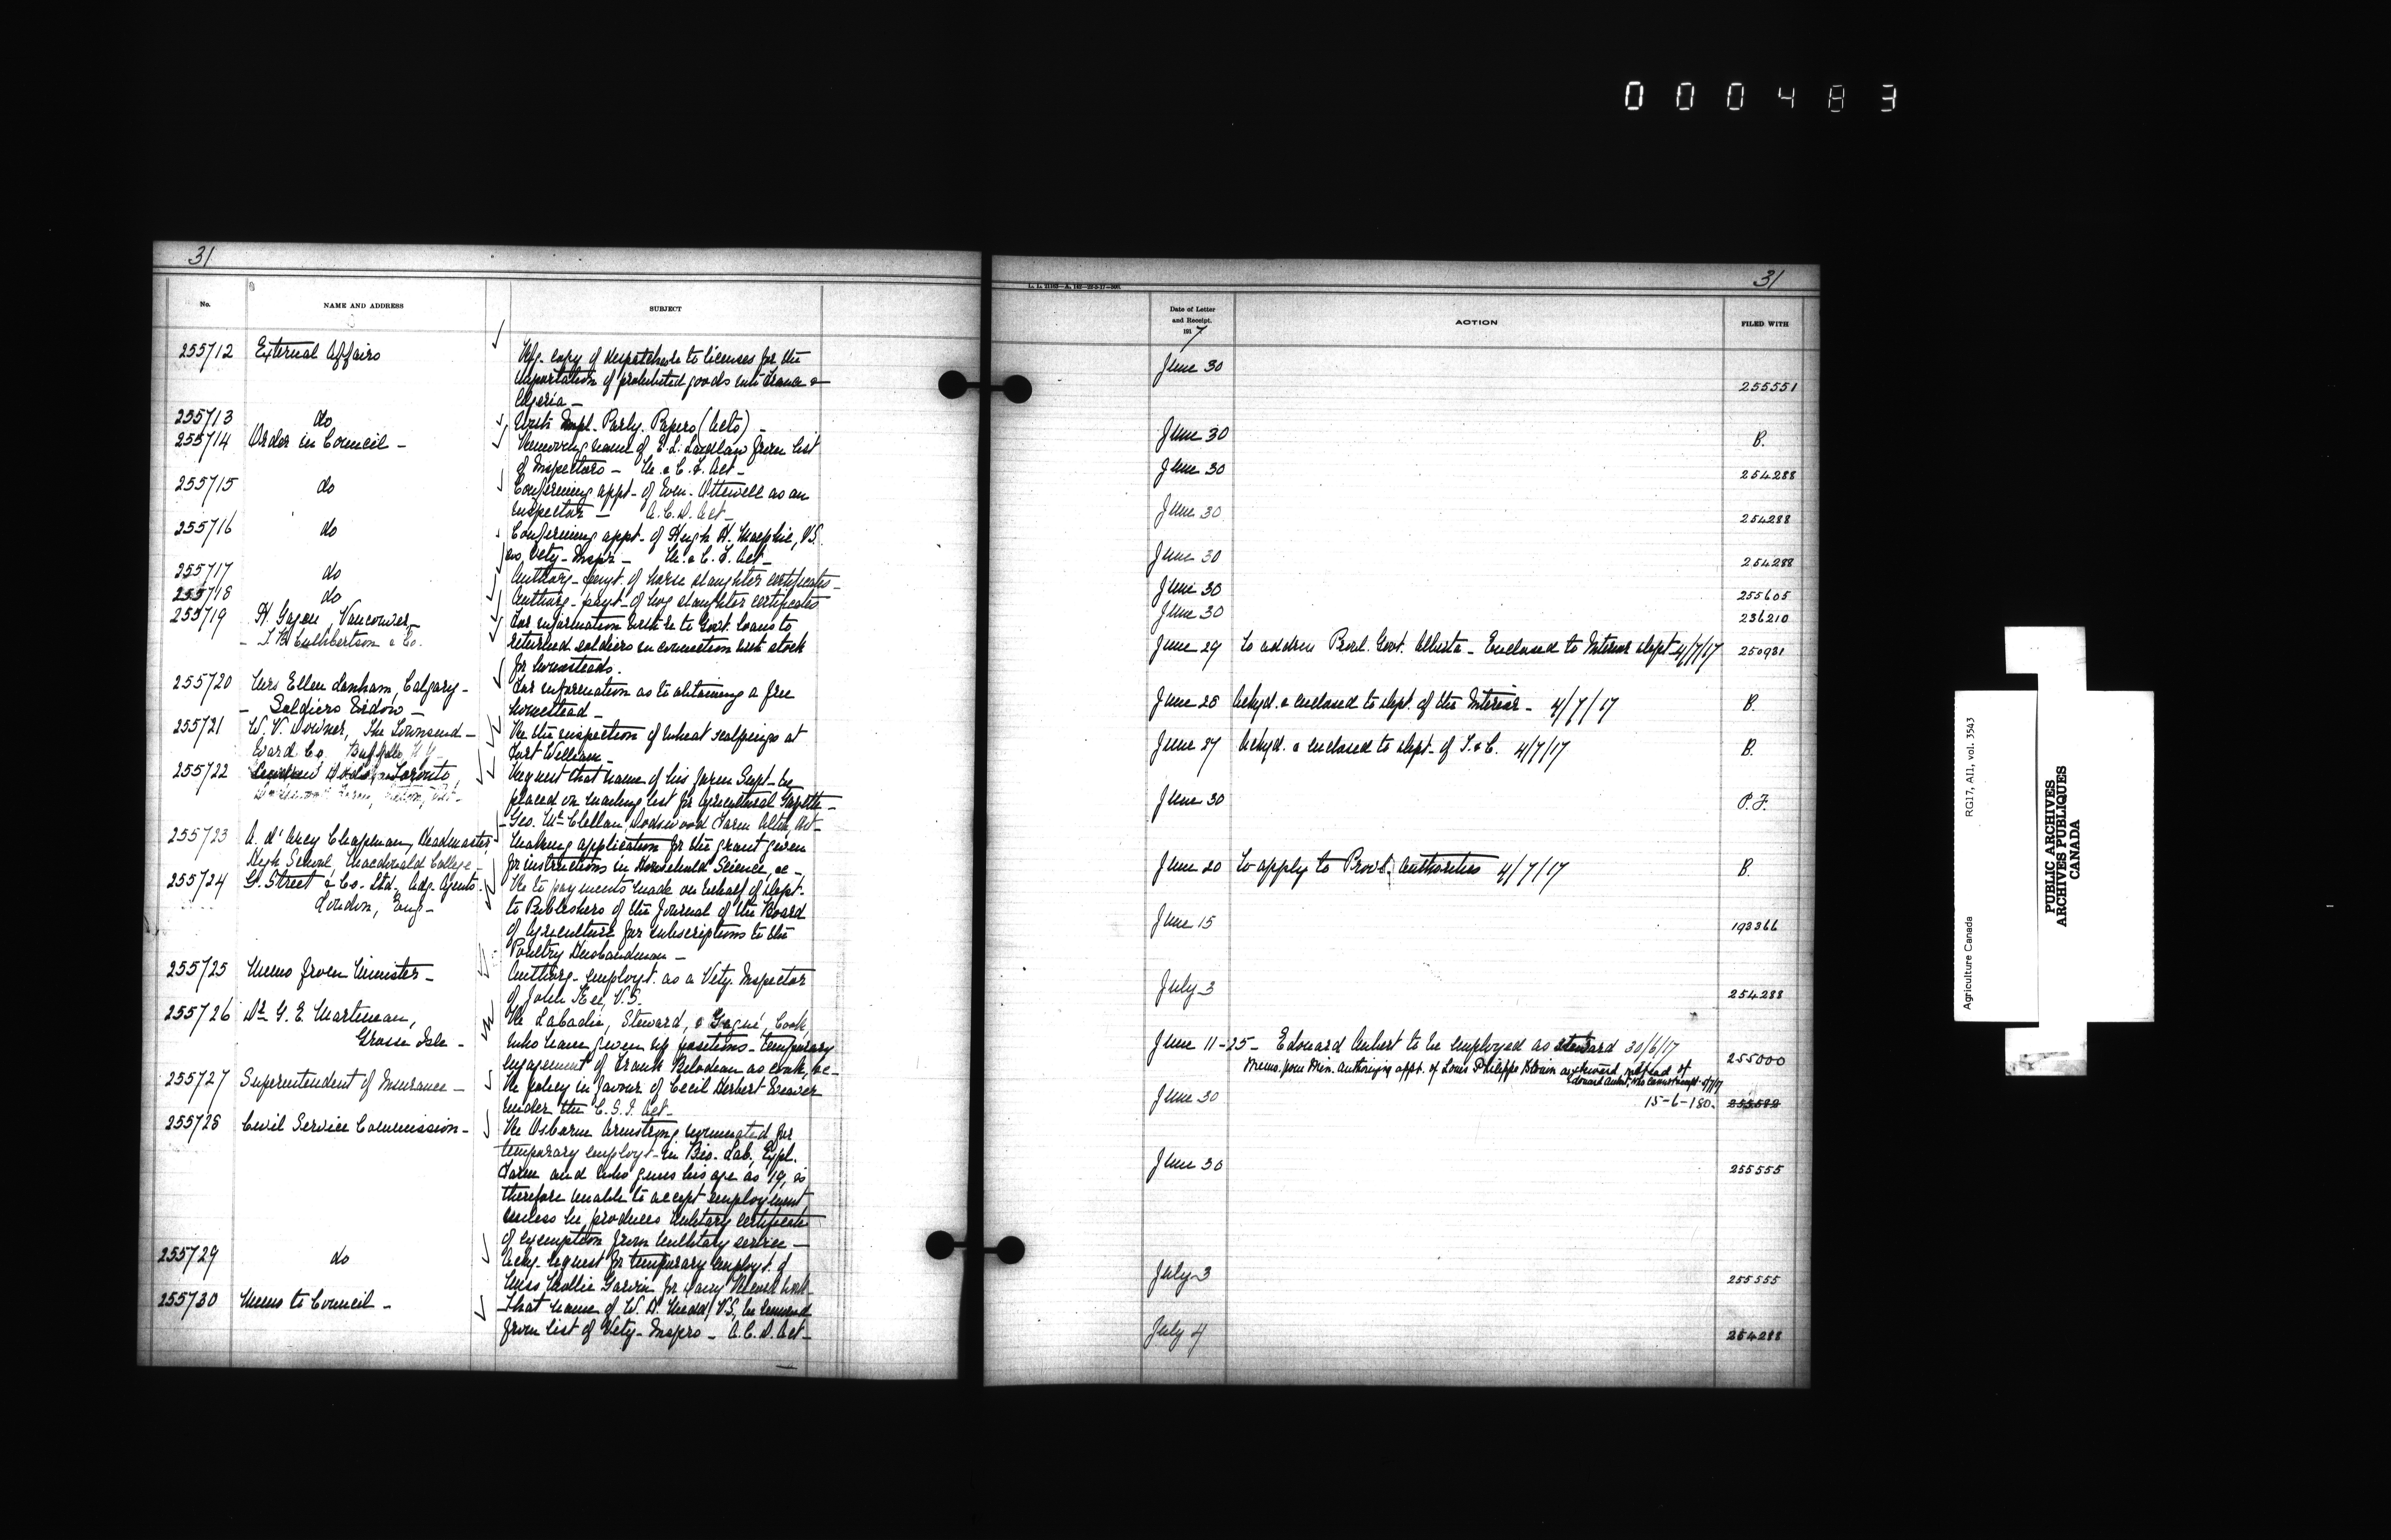 000483
31
No.
NAME AND ADDRESS
SUBJECT
255712 External Affairs
Wg. copy of despatch re to licenses for the
importation of prohibited goods into France &
Algeria —
255713 do
With Impl. Parly. Papers (Acts) —
255714 Order in Council —
Removing name of E. L. Laidlaw from list
of Inspectors — M. & C. F. Act —
255715 do
Confirming appt. of Ottewell as an
Inspector — A.C.D. Act —
255716 do
Confirming appt. of Hugh H. Macphie, V.S.
as Vety. Inspr. — M. & C. F. Act —
255717 do
Authorg. payt. of horse slaughter certificates —
255718 do
Authorg. payt. of hog slaughter certificates
255719 H. Vancouver —
— Cuthbertson & Co.
For information with re to Govt. loans to
returned soldiers in connection with stock
for homesteads.
255720 Mrs Ellen Lanham, Calgary —
— Soldiers Widow —
For information as to obtaining a free
homestead —
255721 W. V. Downer, The Townsend —
Ward Co. Buffalo N.Y. —
Re the inspection of wheat scalpings at
Fort William —
255722 Toronto,
Request that name of his farm Supt. be
placed on mailing list for Agricultural Gazette —
Geo. McClellan, Dodswood Farm
255723 A. d'Arcy Chapman, Headmaster
High School, Macdonald College —
Making application for the grant given
for instructions in Household Science, &c —
255724 G. Street & Co. Ltd. Adg. Agents
London, Eng —
Re to payments made on behalf of Dept.
to Publishers of the Journal of the Board
of Agriculture for subscriptions to the
Poultry Husbandman —
255725 Memo from Minister —
Authorg. employt. as a Vety. Inspector
of John Kee, V.S.
255726 Dr. G. E. Martineau,
Grosse Isle —
Re Labadie, Steward, & Gagné, Cook,
who have given up positions — temporary
engagement of Frank Bilodeau as cook, &c —
255727 Superintendent of Insurance —
Re policy in favour of Cecil Herbert Weaver
under the C.S.I. Act —
255728 Civil Service Commission —
Re Osborne Armstrong nominated for
temporary employt. in Bio. Lab. Expl.
Farm and who gives his age as 19, is
therefore unable to accept employment
unless he produces Military certificate
of exemption from Military service —
255729 do
Ackg. request for temporary employt. of
Miss Mollie Garvin for Dairy Record work —
255730 Memo to Council —
That name of W. A. Mead, V.S., be removed
from list of Vety. Insprs — A.C.D. Act —
31
Date of Letter
and Receipt.
1917
ACTION
FILED WITH
June 30 255551
June 30 B.
June 30 254288
June 30 254288
June 30 254288
June 30 255605
June 30 236210
June 29 To address Provl. Govt. Alberta — Enclosed to Interior Dept — 4/7/17 250981
June 28 Ackgd. & enclosed to Dept. of the Interior — 4/7/17 B.
June 27 Ackgd. & enclosed to Dept. of T. & C. 4/7/17 B.
June 30 P.F.
June 20 To apply to Provl. authorities 4/7/17 B.
June 15 193366
July 3 254288
June 11-25 — Edouard Aubert to be employed as steward 30/6/17 255000
Memo. from Min. authorizing appt. of Louis Philippe Blouin as steward instead of
Edouard Aubert, who cannot accept
June 30 15-6-180.
June 30 255555
July 3 255555
July 4 254288
Agriculture Canada RG17, AII, vol. 3543
PUBLIC ARCHIVES
ARCHIVES PUBLIQUES
CANADA